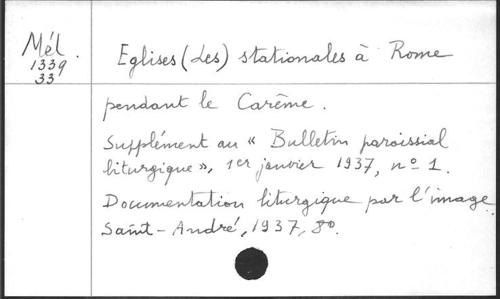 Mél.
1339
33
Eglises (Les) stationales à Rome
pendant le Carême.
Supplément au « Bulletin paroissial
liturgique », 1er janvier 1937, nº 1.
Documentation liturgique par l'image.
Saint-André, 1937, 8º.